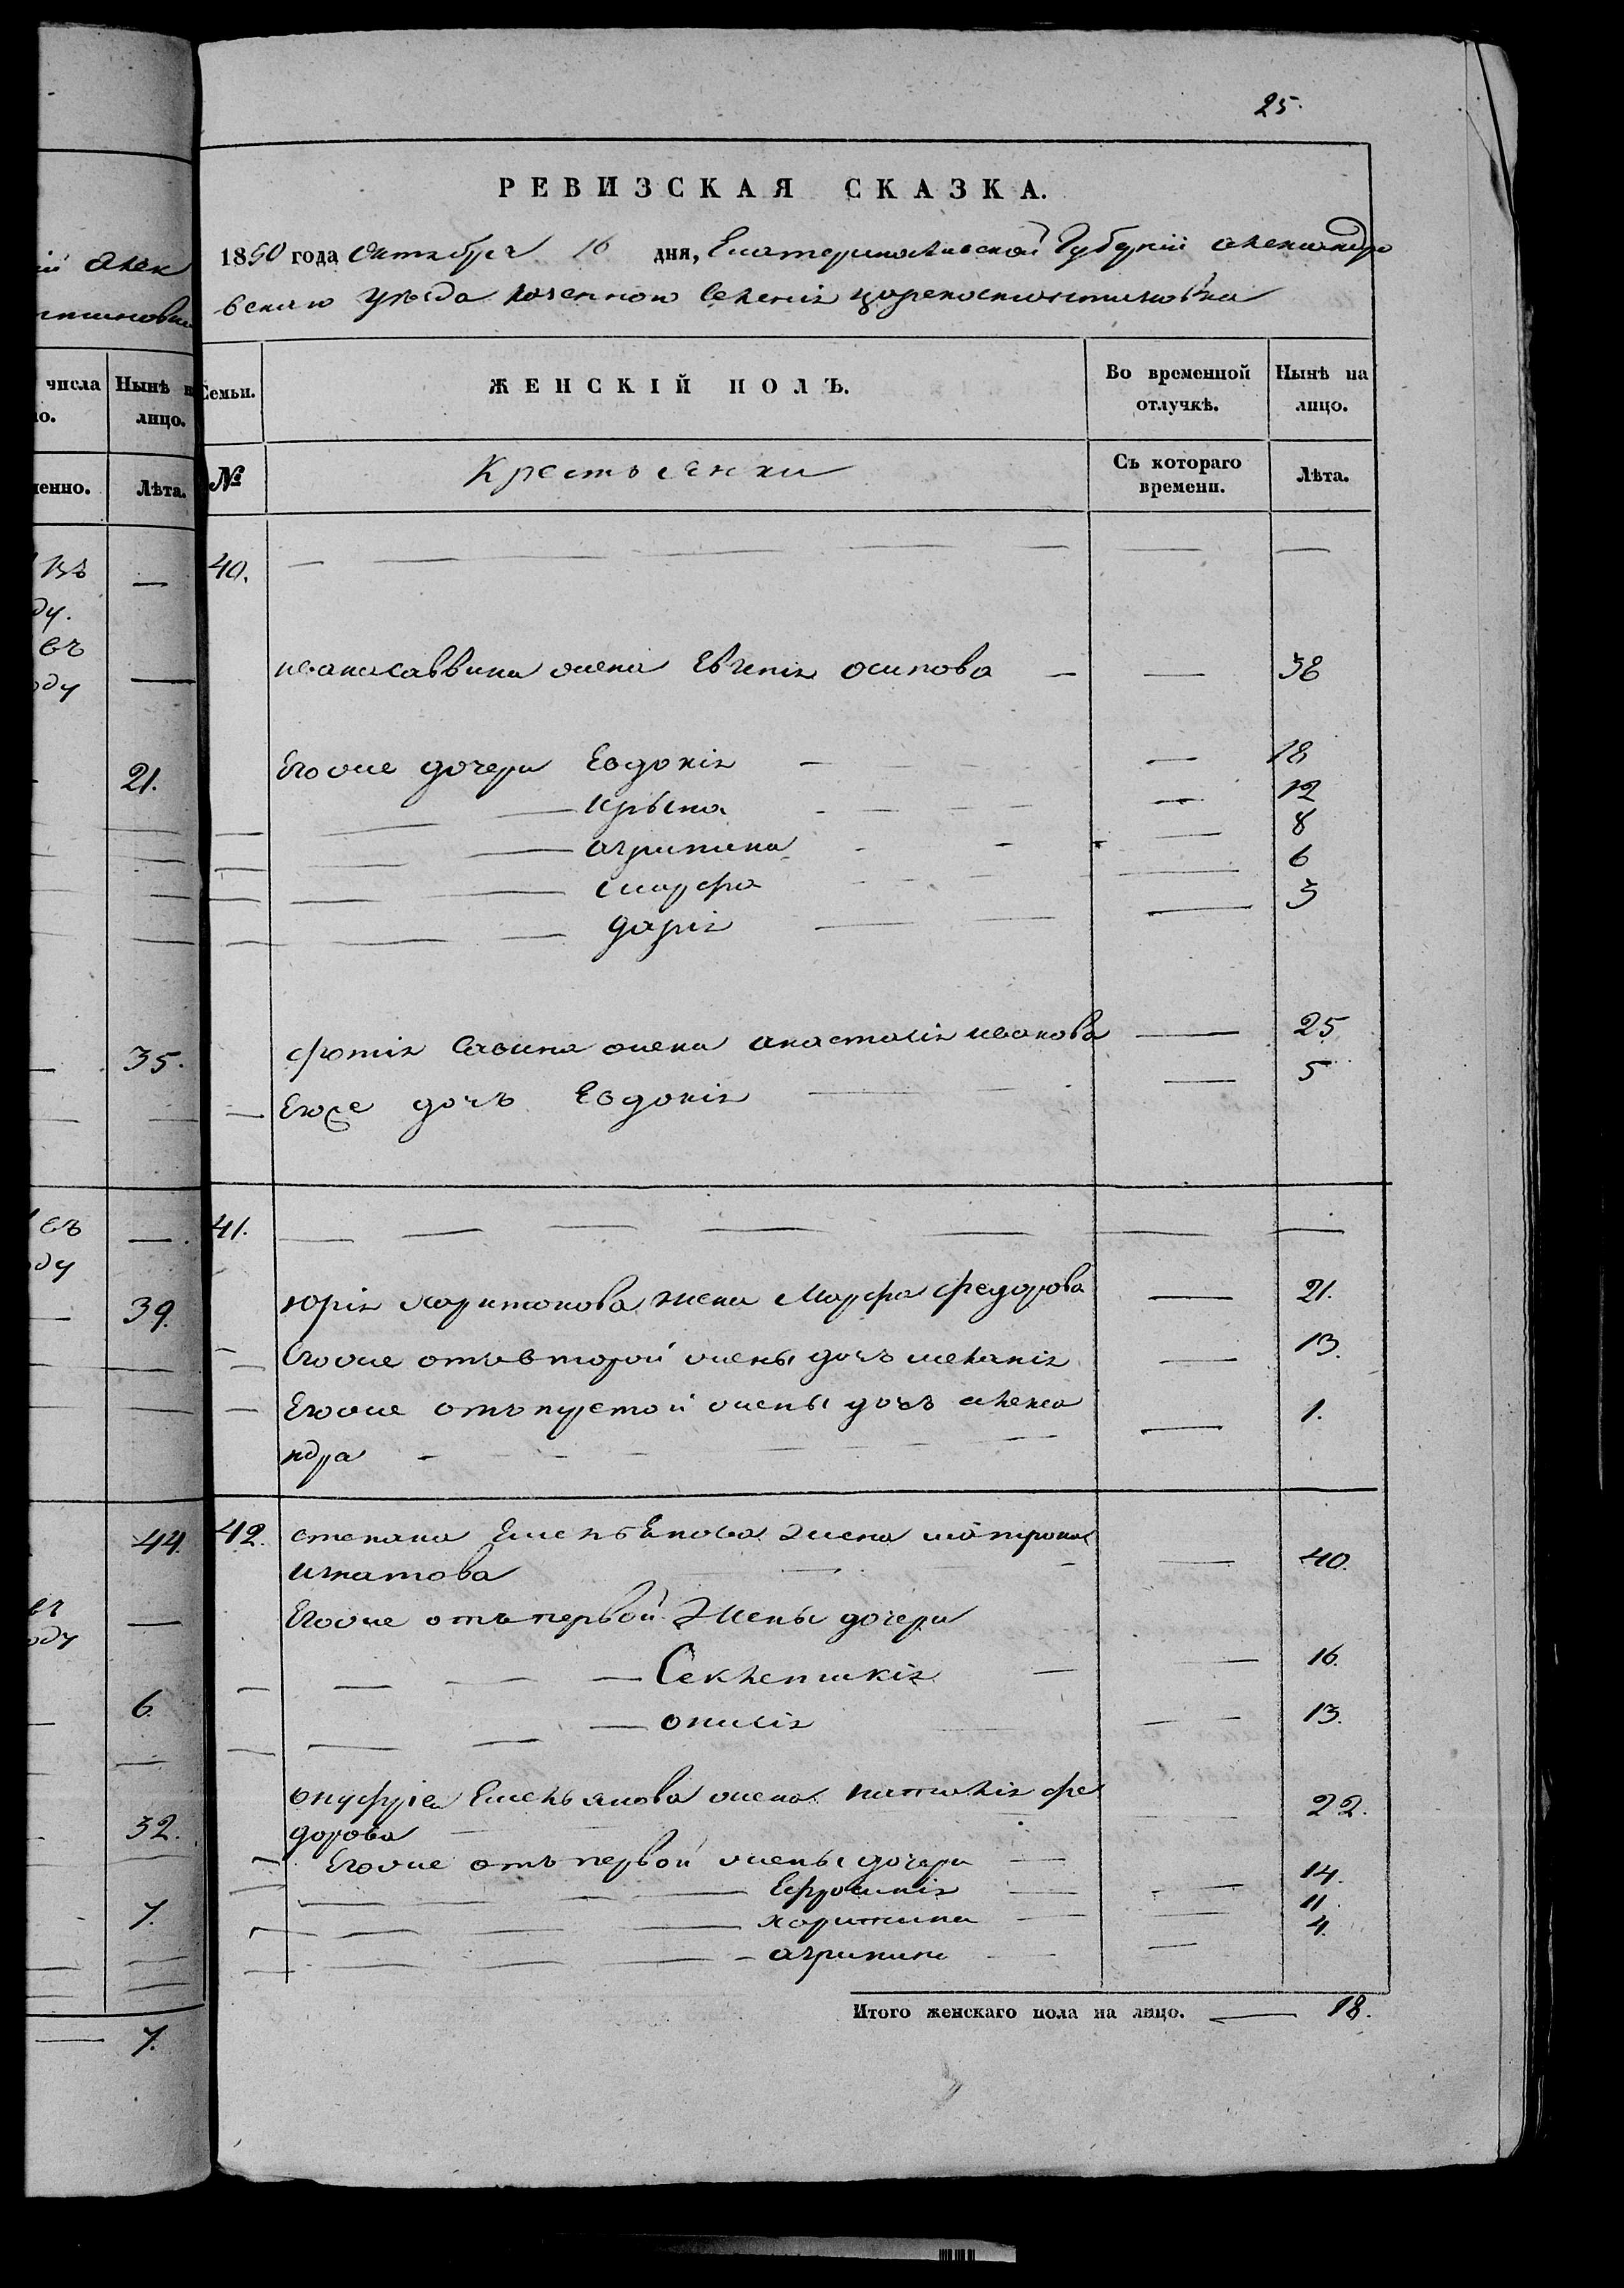 25.
РЕВИЗСКАЯ СКАЗКА.
1850 года Октября 16 дня, Екатеринославской Губернiи александро
вскаго уезда казенного селенiя цареконстантиновка
Семьи. ЖЕНСКIЙ ПОЛЪ. Во временной отлучкѣ. Нынѣ на лицо.
№ Крестьянки Съ котораго времени. Лѣта.
40.
ивана саввина жена Евгенiя осипова — 38
Егоже дочери Евдокiя — 18
Ирына — 12
агрипина — 8
марфа — 6
дарiя — 3
фотiя Савина жена анастасiя иванова — 25
Егоже дочъ Евдокiя — 5
41.
юрiя харитонова жена Марфа федорова — 21.
Егоже отъ второй жены дочъ меланiя — 13.
Егоже отъ третой жены дочъ алекса
ндра — 1.
42. степана Емельянова жена матрона
игнатова — 40.
Егоже отъ первой жены дочери
Секлетикiя — 16.
онисiя — 13.
онуфрiя Емельянова жена наталiя фе
дорова — 22.
Егоже отъ первой жены дочери
Ефросинiя — 14.
харитина — 11.
агрипина — 4.
Итого женскаго пола на лицо. — 18.
ій алек
нтиновки
числа Нынѣ на
лицо.
менно. Лѣта.
въ —
ду.
въ
оду —
21.
35.
въ —
оду
39.
44.
въ
оду —
6.
32.
7.
7.